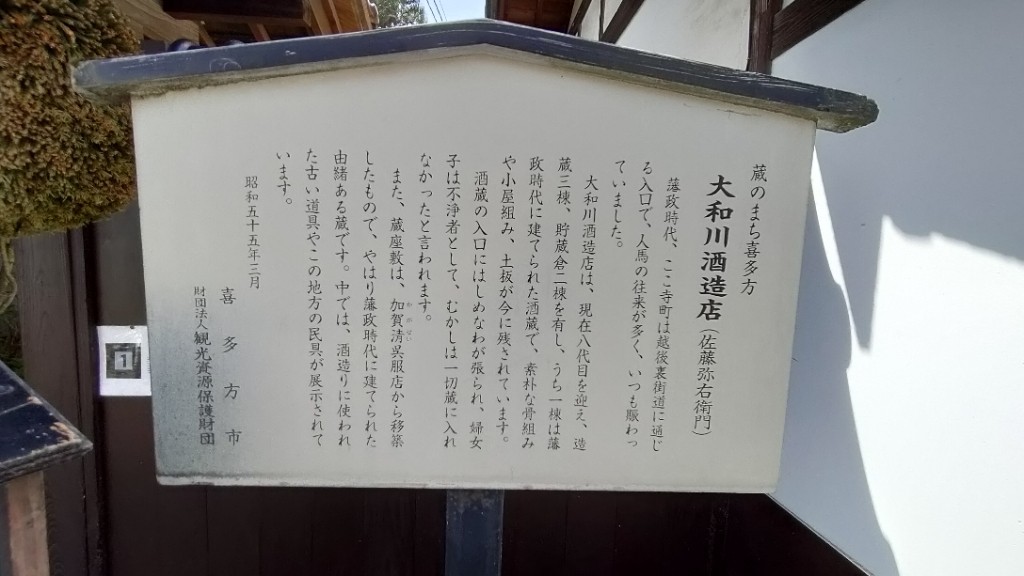 蔵のまち喜多方
大和川酒造店（佐藤弥右衛門）
藩政時代、ここ寺町は越後裏街道に通じ
る入口で、人馬の往来が多く、いつも賑わっ
ていました。
大和川酒造店は、現在八代目を迎え、造
蔵三棟、貯蔵倉二棟を有し、うち一棟は藩
政時代に建てられた酒蔵で、素朴な骨組み
や小屋組み、土扱が今に残されています。
酒蔵の入口にはしめなわが張られ、婦女
子は不浄者として、むかしは一切蔵に入れ
なかったと言われます。
また、蔵座敷は、加賀清呉服店から移築
したもので、やはり藩政時代に建てられた
由緒ある蔵です。中では、酒造りに使われ
た古い道具やこの地方の民具が展示されて
います。
昭和五十五年三月
喜多方市
財団法人観光資源保護財団
1